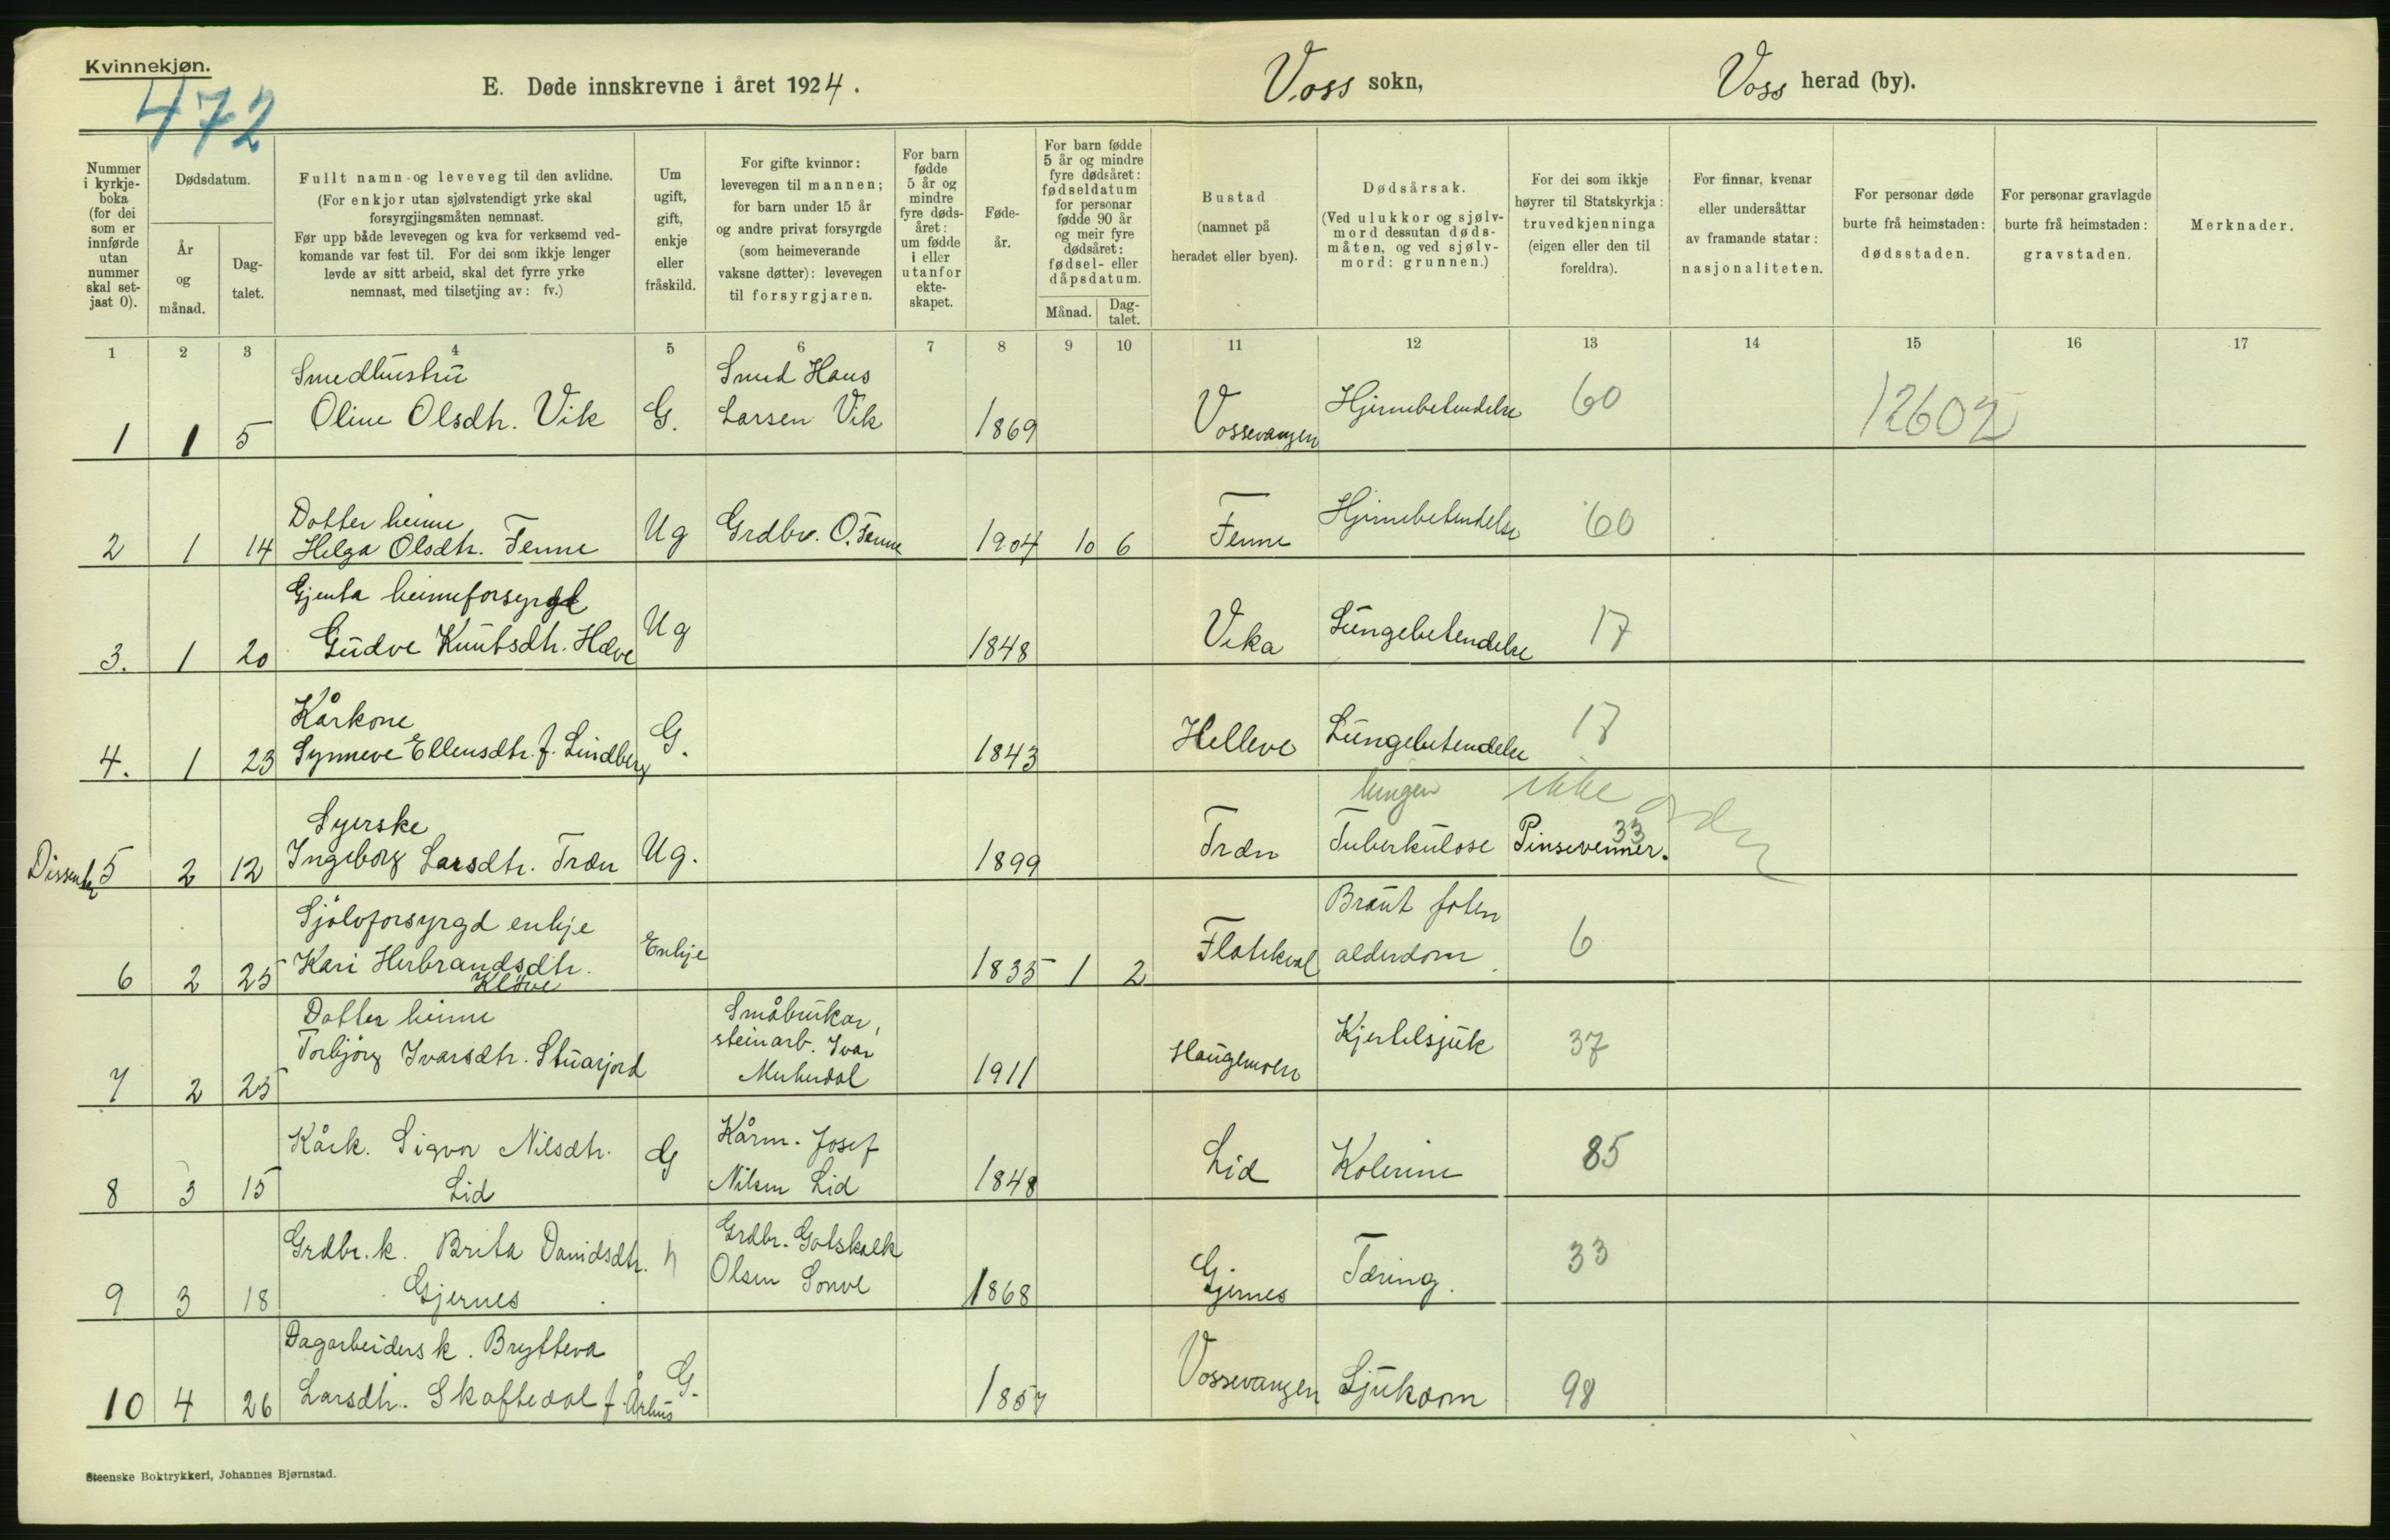 Kvinnekjøn.
472
E. Døde innskrevne i året 1924.
Voss sokn,
Voss herad (by).
Nummer i kyrkjeboka (for dei som er innførde utan nummer skal setjast 0).
Dødsdatum.
År og månad.
Dagtalet.
Fullt namn og leveveg til den avlidne.
(For enkjor utan sjølvstendigt yrke skal
forsyrgjingsmåten nemnast.
Før upp både levevegen og kva for verksemd ved-
komande var fest til. For dei som ikkje lenger
levde av sitt arbeid, skal det fyrre yrke
nemnast, med tilsetjing av: fv.)
Um
ugift,
gift,
enkje
eller
fråskild.
For gifte kvinnor:
levevegen til mannen;
for barn under 15 år
og andre privat forsyrgde
(som heimeverande
vaksne døtter): levevegen
til forsyrgjaren.
For barn
fødde
5 år og
mindre
fyre døds-
året:
um fødde
i eller
utanfor
ekte-
skapet.
Føde-
år.
For barn fødde
5 år og mindre
fyre dødsåret:
fødseldatum
for personar
fødde 90 år
og meir fyre
dødsåret:
fødsel- eller
dåpsdatum.
Månad.
Dag-
talet.
Bustad
(namnet på
heradet eller byen).
Dødsårsak.
(Ved ulukkor og sjølv-
mord dessutan døds-
måten, og ved sjølv-
mord: grunnen.)
For dei som ikkje
høyrer til Statskyrkja:
truvedkjenninga
(eigen eller den til
foreldra).
For finnar, kvenar
eller undersåttar
av framande statar:
nasjonaliteten.
For personar døde
burte frå heimstaden:
dødsstaden.
For personar gravlagde
burte frå heimstaden:
gravstaden.
Merknader.
1 2 3 4 5 6 7 8 9 10 11 12 13 14 15 16 17
Smedhustru Smed Hans
1 1 5 Oline Olsdtr. Vik G. Larsen Vik 1869 Vossevangen Hjernebetendelse 60 12602
Dotter heime
2 1 14 Helga Olsdtr. Fenne Ug Grdbr. O. Fenne 1904 10 6 Fenne Hjernebetendelse 60
Gjenta heimeforsyrgd
3. 1 20 Gudve Knutsdtr. Hæve Ug 1848 Veka Lungebetendelse 17
Kårkone
4. 1 23 Synneve Ellensdtr. f. Lindberg G. 1843 Helleve Lungebetendelse 17
lungen ikke
Syerske
Dissenter 5 2 12 Ingeborg Larsdtr. Træn Ug. 1899 Træn Tuberkulose Pinsevenner. 33
Sjølvforsyrgd enkje Braut foten
6 2 25 Kari Herbrandsdtr. Enkje 1835 1 2 Flatekval alderdom 6
Kløve
Dotter heime Småbrukar,
Torbjørg Ivarsdtr. steinarb. Ivar
7 2 25 1911 Haugamoen Kjertelsjuk 37
Kårk. Sigvor Nilsdtr. G Kårm. Josef
8 3 15 Lid Nilsen Lid 1848 Lid Kolerine 85
Grdbr.k. Brita Davidsdtr. Grdbr. Gotskalk
9 3 18 Gjernes Olsen Sonve 1868 Gjernes Tæring. 33
Dagarbeiders k. Brytteva
10 4 26 Larsdtr. Skaftedal f. Århus G. 1857 Vossevangen Sjukdom 98
Steenske Boktrykkeri, Johannes Bjørnstad.